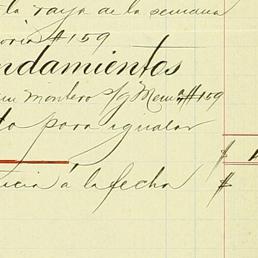 la raya de la semana
oria #159
ndamientos
Montero s/g Mem #159
to para igualar
$ 1
icia á la fecha $